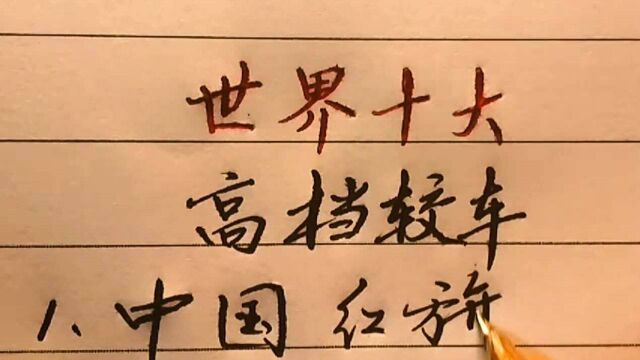 世界十大
高档较车
1、中国 红旗